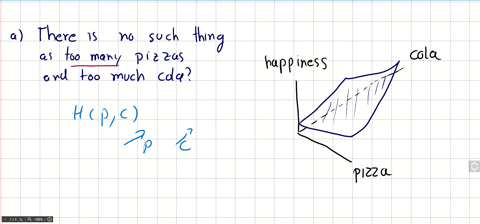 a) There is no such thing
as too many pizzas
and too much cola?
H(p, c)
p c
happiness
cola
pizza